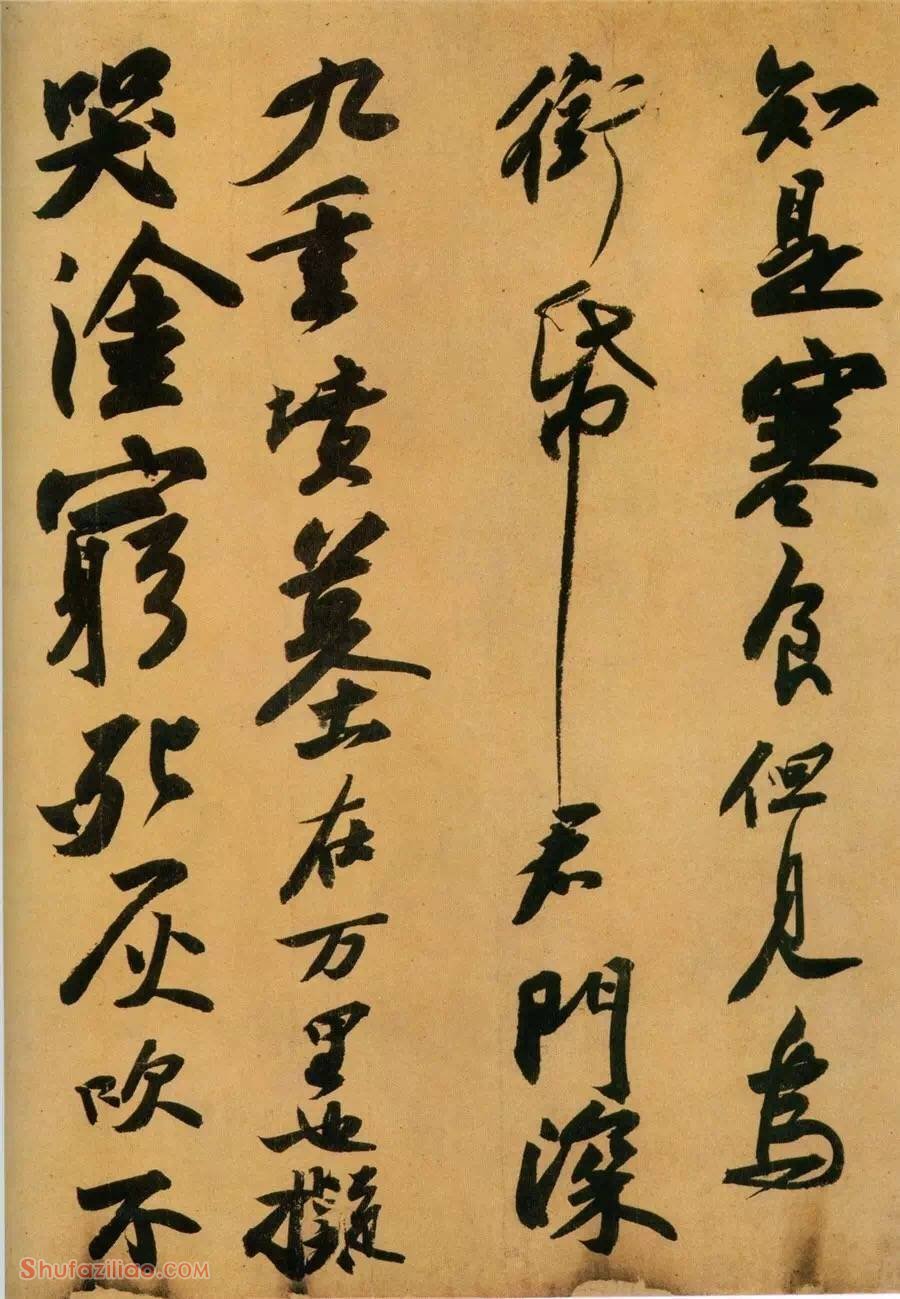 知是寒食但見烏
銜帋君門深
九重墳墓在万里也擬
哭塗窮死灰吹不
Shufaziliao.com